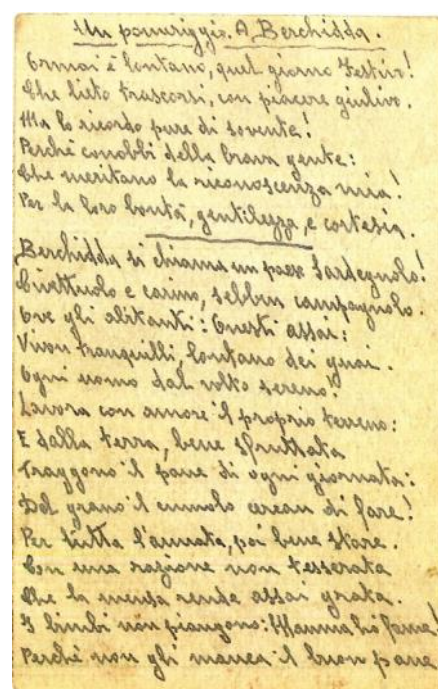 Un pomeriggio. A Berchidda.
Ormai è lontano, quel giorno festivo!
Che lieto trascorsi, con piacere giulivo.
Ma lo ricordo pure di sovente!
Perchè conobbi della brava gente:
Che meritano la riconoscenza mia!
Per la loro bontà, gentilezza, e cortesia.
Berchidda si chiama un paese Sardegnolo!
Civettuolo e carino, sebben campagnolo.
Ove gli abitanti: Onesti assai:
Vivon tranquilli, lontano dei guai.
Ogni uomo dal volto sereno!
Lavora con amore il proprio terreno:
E dalla terra, bene sfruttata
Traggono il pane di ogni giornata:
Dal grano il cumolo cercan di fare!
Per tutta l'annata, poi bene stare.
Con una razione non tesserata
Che la mensa rende assai grata.
I bimbi non piangono: Mamma hò fame!
Perchè non gli manca il buon pane